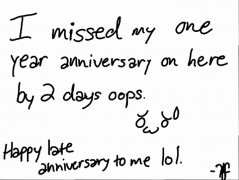 I missed my one
year anniversary on here
by 2 days oops.
Happy late
anniversary to me lol.